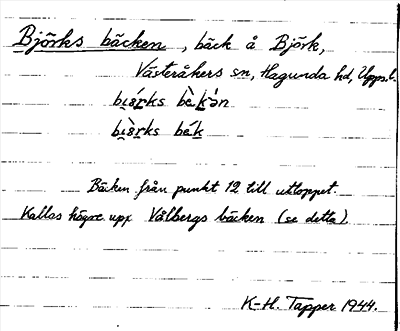 Björks bäcken, bäck å Björk,
Västeråkers sn, Hagunda hd, Upps. l.
Bäcken från punkt 12 till utloppet.
Kallas högre upp Vålbergs bäcken (se detta).
K-H. Tapper 1944.